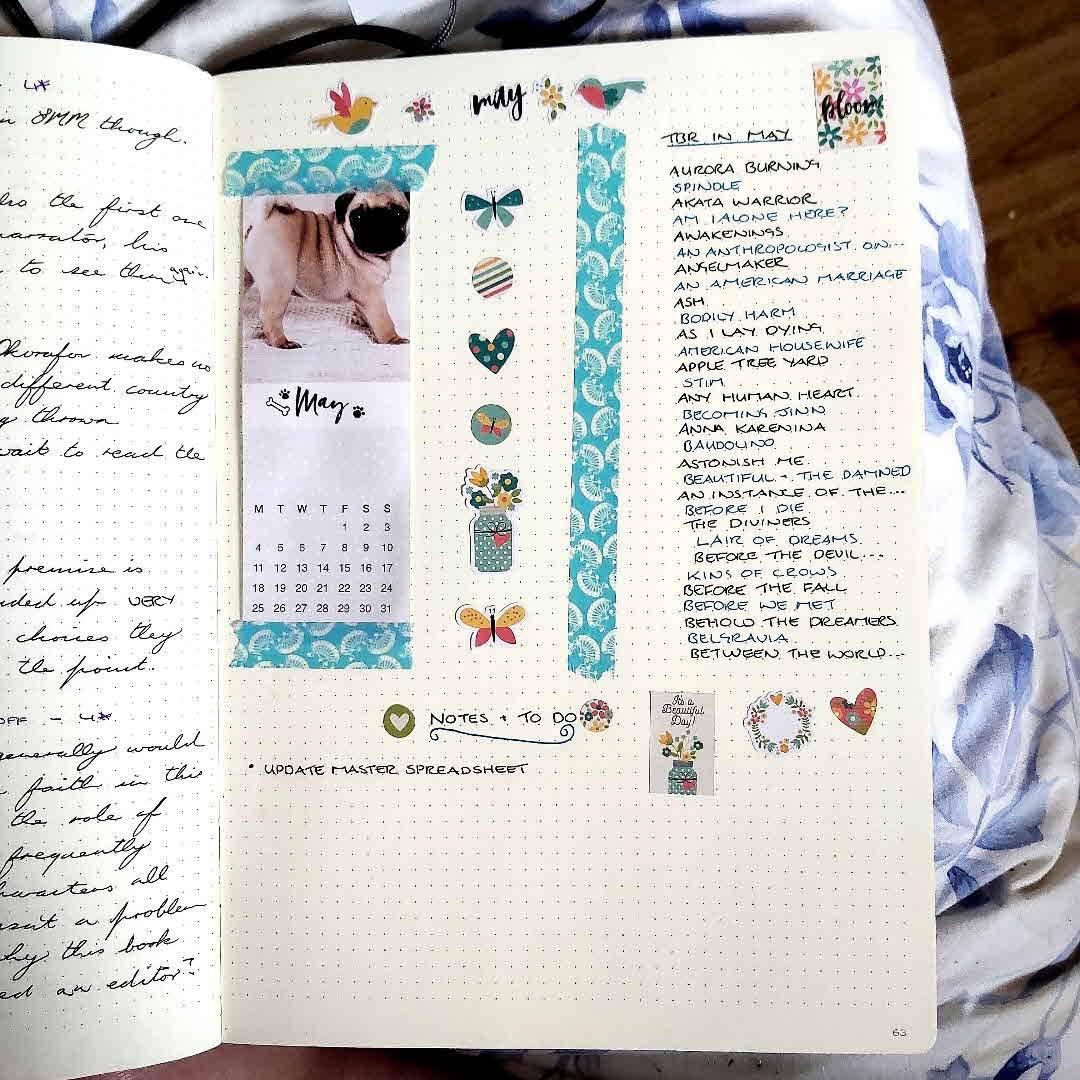 4*
8MM though.
the first one
narrator, his
to see them again.
Okorafor makes no
different country
thrown
wait to read the
premise is
ended up VERY
choices they
the point.
OFF - 4*
generally would
faith in this
the role of
frequently
characters all
wasn't a problem
why this book
an editor?
may
bloom
May
M T W T F S S
1 2 3
4 5 6 7 8 9 10
11 12 13 14 15 16 17
18 19 20 21 22 23 24
25 26 27 28 29 30 31
TBR IN MAY
AURORA BURNING
SPINDLE
AKATA WARRIOR
AM I ALONE HERE?
AWAKENINGS
AN ANTHROPOLOGIST ON...
ANGELMAKER
AN AMERICAN MARRIAGE
ASH
BODILY HARM
AS I LAY DYING
AMERICAN HOUSEWIFE
APPLE TREE YARD
STIM
ANY HUMAN HEART.
BECOMING JINN
ANNA KARENINA
BAUDOLINO
ASTONISH ME
BEAUTIFUL + THE DAMNED
AN INSTANCE OF THE...
BEFORE I DIE
THE DIVINERS
LAIR OF DREAMS
BEFORE THE DEVIL...
KING OF CROWS
BEFORE THE FALL
BEFORE WE MET
BEHOLD THE DREAMERS
BELGRAVIA
BETWEEN THE WORLD...
NOTES + TO DO
• UPDATE MASTER SPREADSHEET
It's a
Beautiful
Day!
63